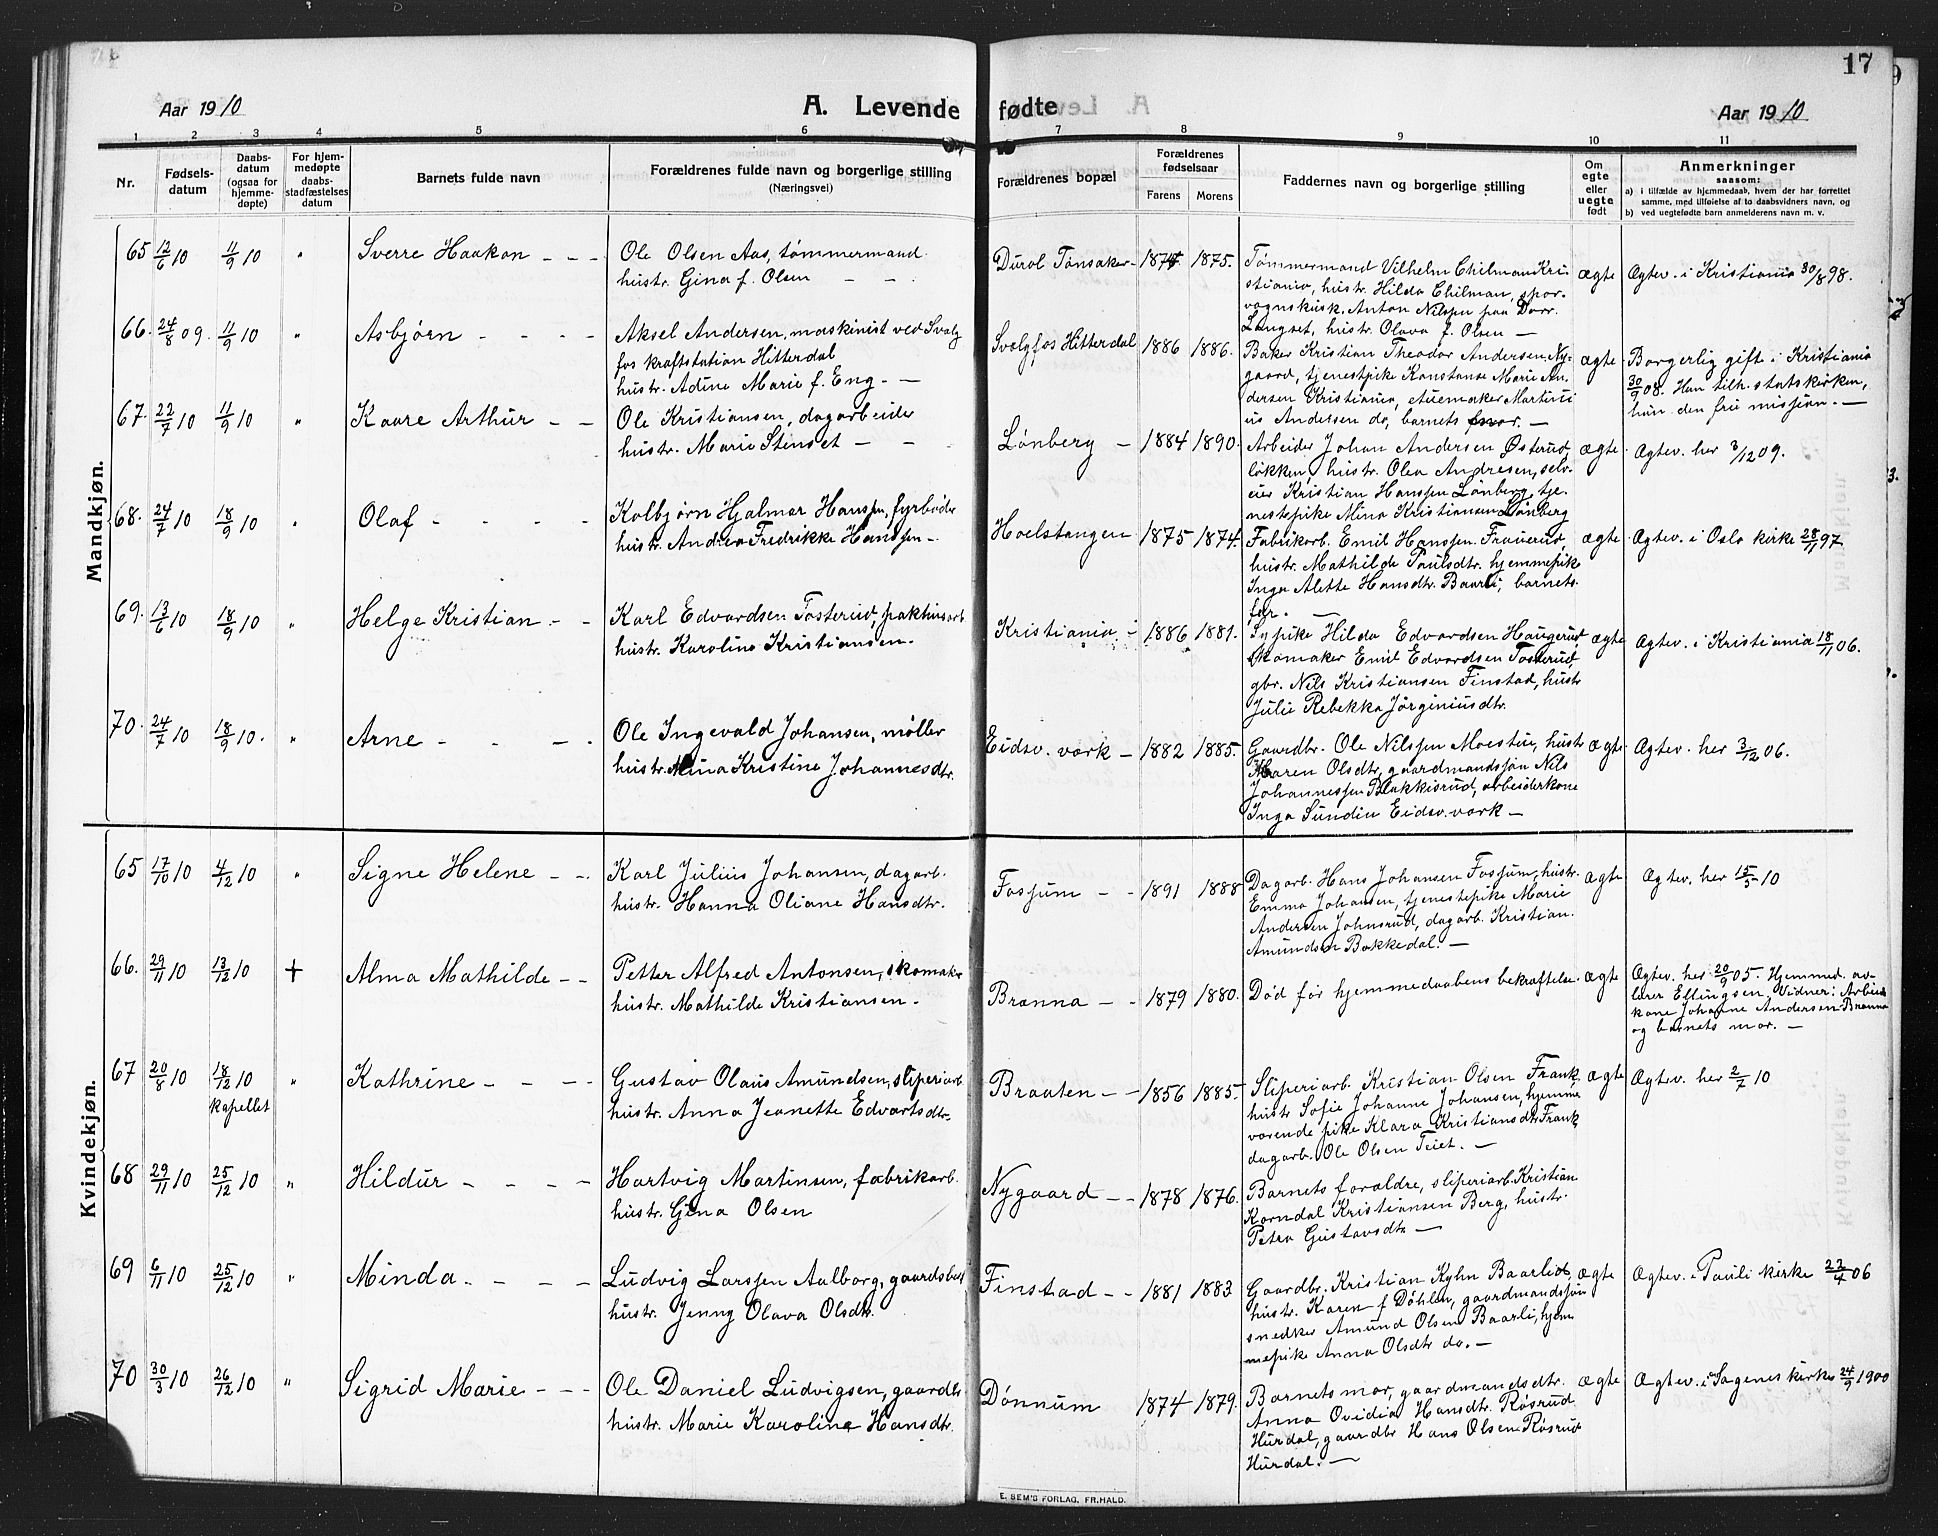 17
Aar 1910
A. Levende fødte
Aar 1910
1 2 3 4 5 6 7 8 9 10 11
Nr.
Fødsels-
datum
Daabs-
datum
(ogsaa for
hjemme-
døpte)
For hjem-
medøpte
daabs-
stadfæstelses
datum
Barnets fulde navn
Forældrenes fulde navn og borgerlige stilling
(Næringsvei)
Forældrenes bopæl
Forældrenes
fødselsaar
Farens Morens
Faddernes navn og borgerlige stilling
Om
egte
eller
uegte
født
Anmerkninger
saasom:
a) i tilfælde av hjemmedaab, hvem der har forrettet
samme, med tilføielse af to daabsvidners navn, og
b) ved uegtefødte barn anmelderens navn m. v.
Mandkjøn.
65 12/6 10 11/9 10 " Sverre Haakon - - -
Ole Olsen Aas, tømmermand
hustr. Gina f. Olsen - -
Durol Tønsaker - 1874 1875.
Tømmermand Vilhelm Chilman Kri
stiania, hustr. Hilda Chilman, spor-
vognskusk. Anton Nilssen paa Dorr.
Langset, hustr. Olava f. Olsen -
ægte
Ægtev. i Kristiania 30/8 98.
66. 24/8 09. 11/9 10 " Asbjørn - - - -
Aksel Andersen, maskinist ved Svælg
fos kraftstation Hitterdal
hustr. Adine Marie f. Eng. -
Svælgfos Hitterdal 1886 1886.
Baker Kristian Theodor Andersen, Ny-
gaard, tjenestpike Konstanse Marie An
dersen Kristiania, Martini
us Andersen do, barnets mor. -
ægte
Borgerlig gift i Kristiania
30/9 08. Han tilh. statskirken,
hun den frie missjon. -
67. 22/7 10 11/9 10 " Kaare Arthur - -
Ole Kristiansen, dagarbeider
hustr. Marie Stenset - -
Lønberg - 1884 1890.
Arbeider Johan Andersen Østerud
løkken, hustr. Olea Andresen, selv-
eier Kristian Hanssen Lønberg, tje-
nestepike Mina Kristiansen Lønberg
ægte
Ægtev. her 3/12 09.
68. 24/7 10 18/9 10 " Olaf - - - -
Kolbjørn Hjalmar Hanssen, fyrbøder
hustr. Andrea Fredrikke Hanssen -
Hoelstangen 1875 1874.
Fabrikarb. Emil Hanssen Frauerud,
hustr. Mathilde Paulsdtr. hjemmepike
Inga Alette Hansdtr. Baarli, barnets
far. -
ægte
Ægtev. i Oslo kirke 28/11 97
69. 13/6 10 18/9 10 " Helge Kristian - -
Karl Edvardsen Tosterud, pakhusarb.
hustr. Karoline Kristiansen -
Kristiania - 1886 1881.
Sypike Hilda Edvardsen Haugerud
skomaker Emil Edvardsen Tosterud,
gbr. Nils Kristiansen Finstad, hustr
Julie Rebekka Jørginiusdtr.
ægte
Ægtev. i Kristiania 18/11 06.
70. 24/7 10 18/9 10. " Arne - - - -
Ole Ingevald Johansen, møller
hustr. Mina Kristine Johannesdtr.
Eidsv. værk - 1882 1885.
Gaardbr. Ole Nilssen Moestue, hustr
Maren Olsdtr, gaardmandssøn Nils
Johannessen Blakkisrud, arbeiderkone
Inga Sundin Eidsv. værk -
ægte
Ægtev. her 3/12 06.
Kvindekjøn.
65 17/10 10 4/12 10 " Signe Helene - -
Karl Julius Johansen, dagarb.
hustr. Hanna Oliane Hansdtr.
Fossum - - 1891 1888
Dagarb. Hans Johansen Fossum, hustr.
Emma Johansen, tjenestepike Marie
Andersen Johnsrud, dagarb. Kristian
Amundsen Bakkedal. -
ægte
Ægtev. her 15/5 10
66. 29/11 10 13/12 10 + Alma Mathilde - -
Petter Alfred Antonsen, skomaker
hustr. Mathilde Kristiansen -
Brænna - - 1879 1880.
Død før hjemmedaabens bekræftelse.
ægte
Ægtev. her 20/9 05. Hjemmed. av
lærer Ellingsen. Vidner: Arbeids
kone Johanne Andersen Brænna
og barnets mor. -
67 20/8 10 18/12 10 " Kathrine - - - -
kapellet
Gustav Olaus Amundsen, sliperiarb.
hustr. Anna Jeanette Edvartsdtr.
Braaten - - 1856 1885.
Sliperiarb. Kristian Olsen Frank,
hustr Sofie Johanne Johansen, hjemme
værende pike Klara Kristiansdtr Frank,
dagarb. Ole Olsen Teiet. -
ægte
Ægtev. her 2/7 10
68 29/11 10 25/12 10 " Hildur - - - -
Hartvig Martinsen, fabrikarb.
hustr. Gina Olsen
Nygaard - - 1878 1876.
Barnets forældre, sliperiarb. Kristian
Korndal Kristiansen Berg, hustr.
Petra Gustavsdtr -
69 6/11 10 25/12 10 " Minda - - - -
Ludvig Larssen Aalborg, gaardsbest
hustr. Jenny Olava Olsdtr.
Finstad - - 1881 1883
Gaardbr. Kristian Kyhn Baarlid,
hustr. Karen f Døhlen, gaardmandssøn
snedker Amund Olsen Baarli, hjem
mepike Anna Olsdtr do. -
ægte
Ægtev. i Pauli kirke 22/4 06
70 30/3 10 26/12 10 " Sigrid Marie - - -
Ole Daniel Ludvigsen, gaardbr.
hustr. Marie Karoline Hansdtr.
Dønnum 1874 1879.
Barnets mor, gaardmandsdtr.
Anna Ovidia Hansdtr. Røsrud
Hurdal, gaardbr Hans Olsen Røsrud
Hurdal. -
ægte
Ægtev. i Sagenes kirke 24/9 1900
E. SEM'S FORLAG, FR.HALD.